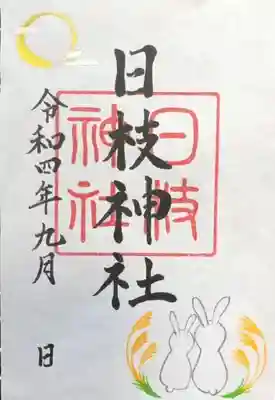 日枝神社
日枝神社
令和四年九月 日